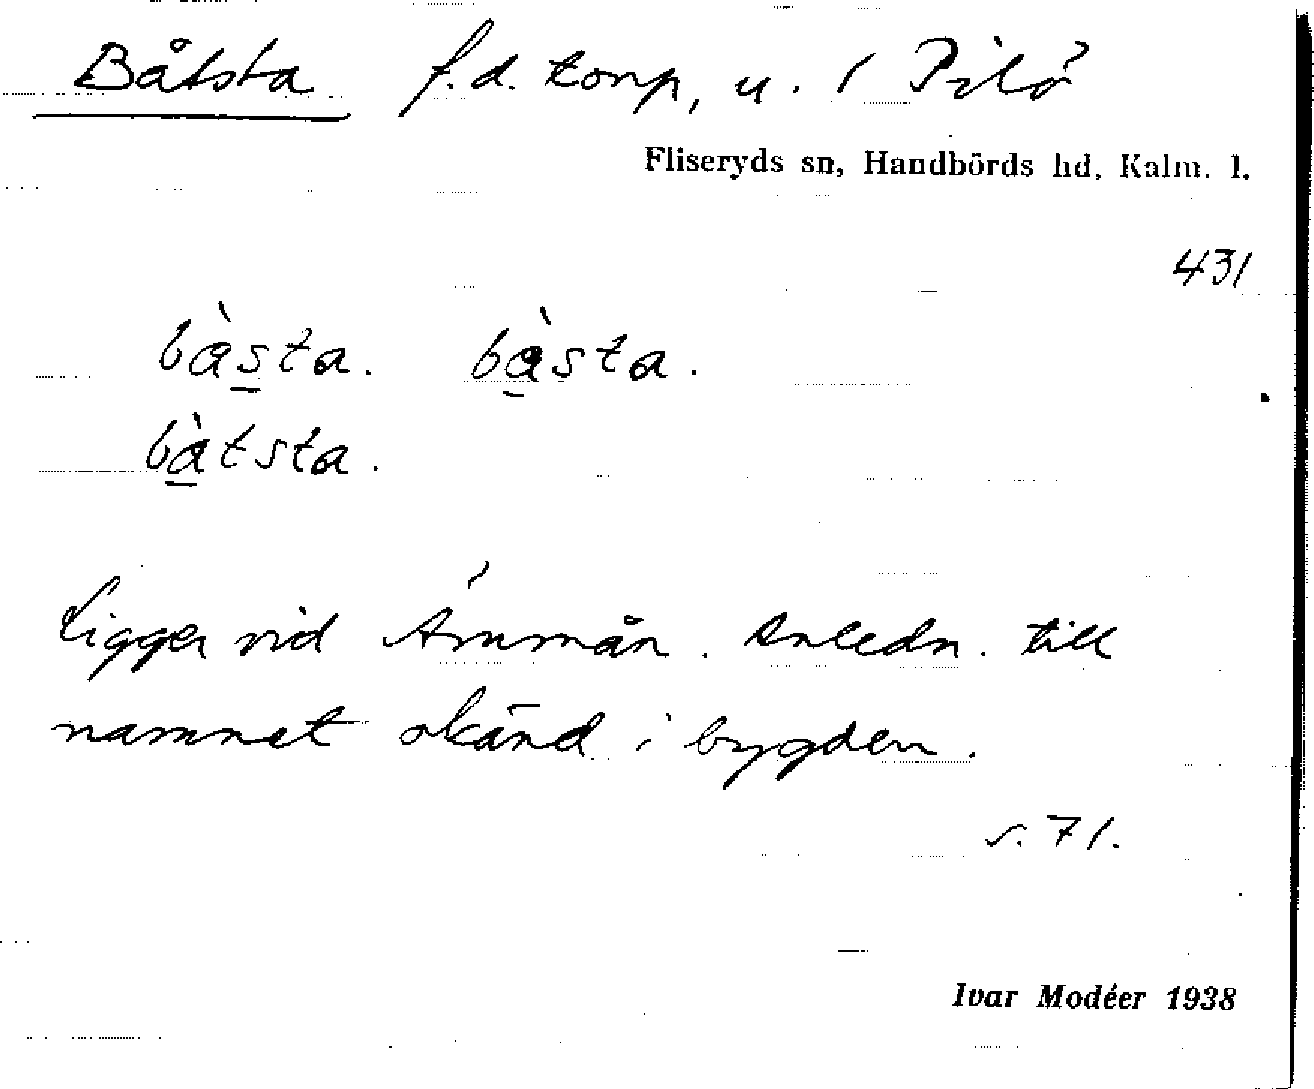 Båtsta f.d. torp, u. 1 Pilö
Fliseryds sn, Handbörds hd, Kalm. l.
431
bàsta. bàsta.
bàtsta.
Ligger vid Ämmån. Anledn. till
namnet okänd i bygden.
s. 71.
Ivar Modéer 1938